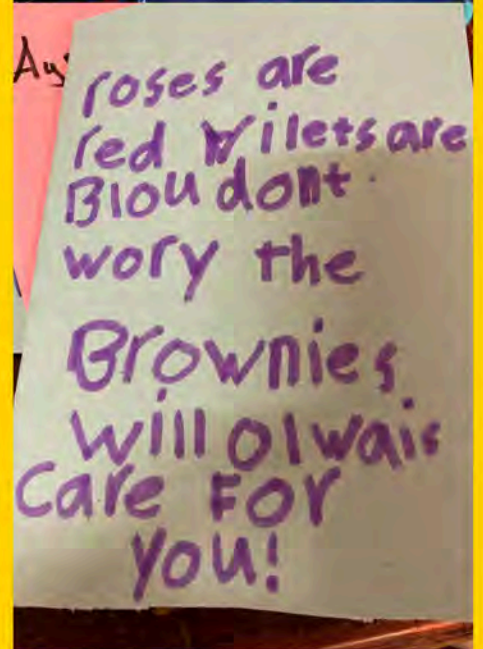 Ay
roses are
red vilets are
Blou dont
wory the
Brownies
will olwais
Care For
you!